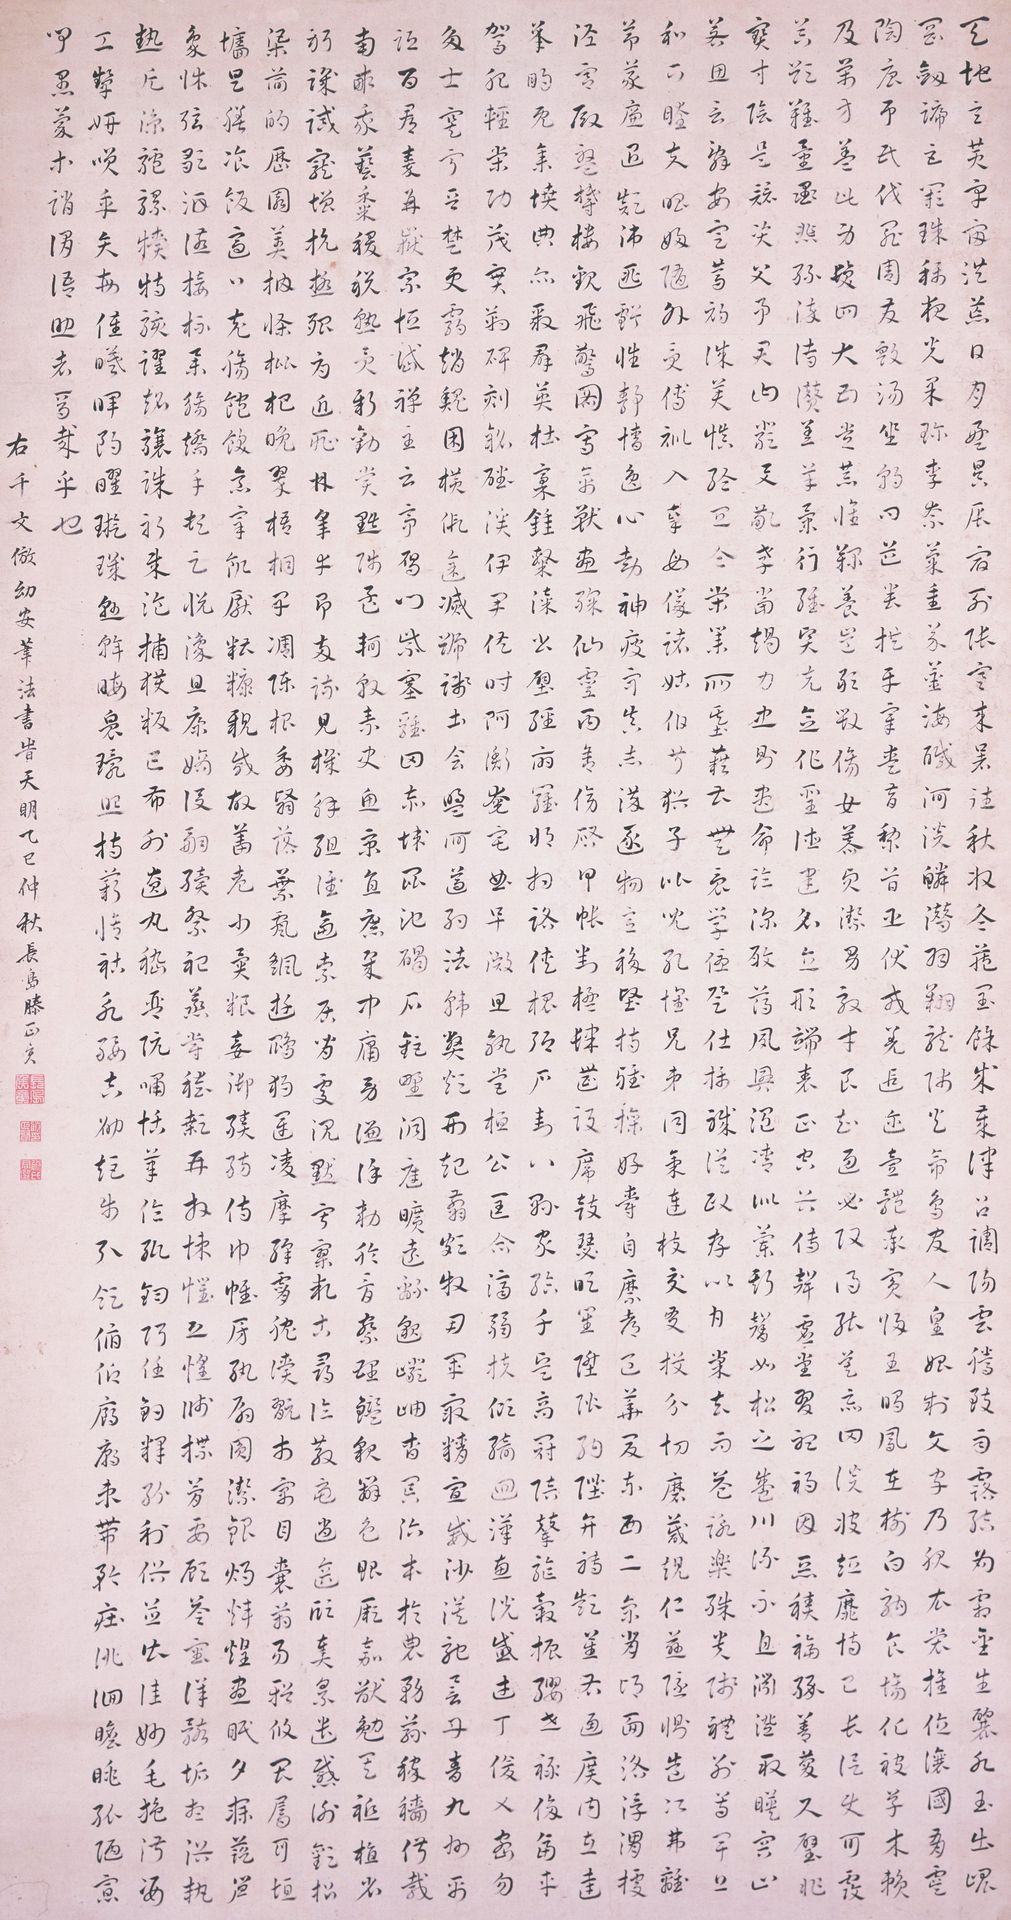 天地玄黃宇宙洪荒日月盈昃辰宿列張寒來暑往秋收冬藏閏餘成歲律召調陽雲騰致雨露結為霜金生麗水玉出崑
岡劍號巨闕珠稱夜光果珍李柰菜重芥薑海鹹河淡鱗潛羽翔龍師火帝鳥官人皇始制文字乃服衣裳推位讓國有虞
陶唐弔民伐罪周發殷湯坐朝問道垂拱平章愛育黎首臣伏戎羌遐邇壹體率賓歸王鳴鳳在樹白駒食場化被草木賴
及萬方蓋此身髮四大五常恭惟鞠養豈敢毀傷女慕貞潔男效才良知過必改得能莫忘罔談彼短靡恃己長信使可覆
器欲難量墨悲絲染詩讚羔羊景行維賢克念作聖德建名立形端表正空谷傳聲虛堂習聽禍因惡積福緣善慶尺璧非
寶寸陰是競資父事君曰嚴與敬孝當竭力忠則盡命臨深履薄夙興溫凊似蘭斯馨如松之盛川流不息淵澄取映容止
若思言辭安定篤初誠美慎終宜令榮業所基藉甚無竟學優登仕攝職從政存以甘棠去而益詠樂殊貴賤禮別尊卑上
和下睦夫唱婦隨外受傅訓入奉母儀諸姑伯叔猶子比兒孔懷兄弟同氣連枝交友投分切磨箴規仁慈隱惻造次弗離
節義廉退顛沛匪虧性靜情逸心動神疲守真志滿逐物意移堅持雅操好爵自縻都邑華夏東西二京背邙面洛浮渭據
涇宮殿盤鬱樓觀飛驚圖寫禽獸畫綵仙靈丙舍傍啟甲帳對楹肆筵設席鼓瑟吹笙陞階納陛弁轉疑星右通廣內左達
承明既集墳典亦聚群英杜稾鍾隸漆書壁經府羅將相路俠槐卿戶封八縣家給千兵高冠陪輦驅轂振纓世祿侈富車
駕肥輕策功茂實勒碑刻銘磻溪伊尹佐時阿衡奄宅曲阜微旦孰營桓公匡合濟弱扶傾綺迴漢惠說感武丁俊乂密勿
多士寔寧晉楚更霸趙魏困橫假途滅虢踐土會盟何遵約法韓弊煩刑起翦頗牧用軍最精宣威沙漠馳譽丹青九州禹
跡百郡秦并嶽宗恒岱禪主云亭雁門紫塞雞田赤城昆池碣石鉅野洞庭曠遠綿邈巖岫杳冥治本於農務茲稼穡俶載
南畝我藝黍稷稅熟貢新勸賞黜陟孟軻敦素史魚秉直庶幾中庸勞謙謹勅聆音察理鑑貌辨色貽厥嘉猷勉其祗植省
躬譏誡寵增抗極殆辱近恥林皋幸即兩疏見機解組誰逼索居閒處沉默寂寥求古尋論散慮逍遙欣奏累遣慼謝歡招
渠荷的歷園莽抽條枇杷晚翠梧桐早凋陳根委翳落葉飄颻遊鵾獨運凌摩絳霄耽讀翫市寓目囊箱易輶攸畏屬耳垣
牆具膳飡飯適口充腸飽飫烹宰飢厭糟糠親戚故舊老少異糧妾御績紡侍巾帷房紈扇圓潔銀燭煒煌晝眠夕寐藍筍
象床弦歌酒讌接杯舉觴矯手頓足悅豫且康嫡後嗣續祭祀蒸嘗稽顙再拜悚懼恐惶牋牒簡要顧答審詳骸垢想浴執
熱願涼驢騾犢特駭躍超驤誅斬賊盜捕獲叛亡布射遼丸嵇琴阮嘯恬筆倫紙鈞巧任釣釋紛利俗並皆佳妙毛施淑姿
工顰妍笑年矢每催曦暉朗曜璇璣懸斡晦魄環照指薪修祜永綏吉劭矩步引領俯仰廊廟束帶矜莊徘徊瞻眺孤陋寡
聞愚蒙等誚謂語助者焉哉乎也
右千文倣幼安筆法書旹天明乙巳仲秋長島滕正